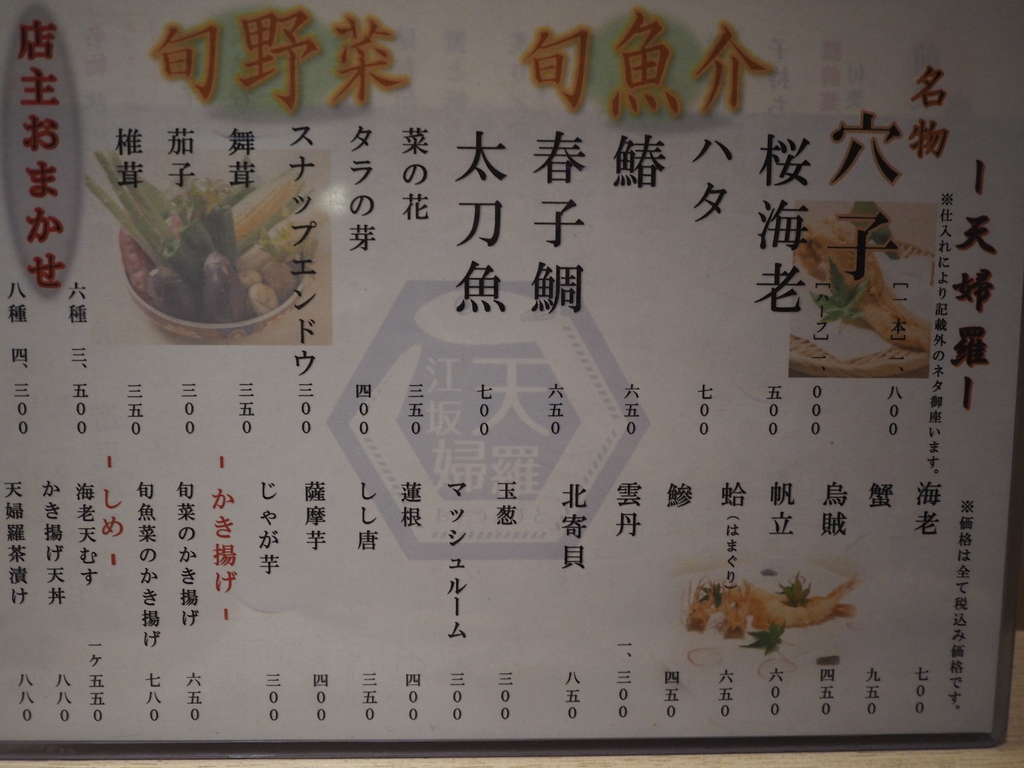 ―天婦羅―
※仕入れにより記載外のネタ御座います。
※価格は全て税込み価格です。
名物
穴子
[一本]一、八00
[ハーフ]一、000
旬魚介
桜海老 五00
ハタ 七00
鰆 六五0
春子鯛 六五0
太刀魚 七00
旬野菜
菜の花 三五0
タラの芽 四00
スナップエンドウ 三00
舞茸 三五0
茄子 三00
椎茸 三五0
店主おまかせ
六種 三、五00
八種 四、三00
海老 七00
蟹 九五0
烏賊 四五0
帆立 六00
蛤(はまぐり) 六五0
鯵 四五0
雲丹 一、三00
北寄貝 八五0
玉葱 三00
マッシュルーム 三00
蓮根 四00
しし唐 三五0
薩摩芋 四00
じゃが芋 三00
―かき揚げ―
旬菜のかき揚げ 六五0
旬魚菜のかき揚げ 七八0
―しめ―
海老天むす 一ケ五五0
かき揚げ天丼 八八0
天婦羅茶漬け 八八0
江坂
天婦羅